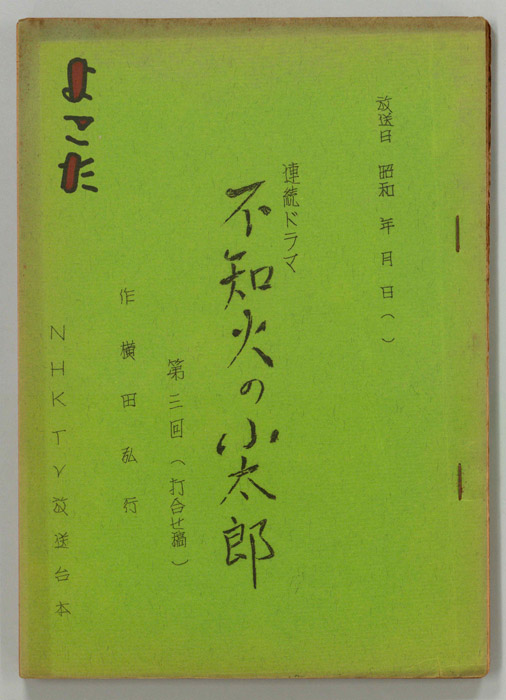 放送日 昭和 年 月 日( )
連続ドラマ
不知火の小太郎
第三回(打合せ稿)
作 横田弘行
NHKTV放送台本
よこた